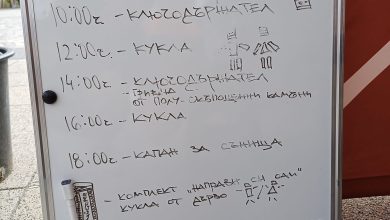 10:00г. - КЛЮЧОДЪРЖАТЕЛ
12:00г. - КУКЛА
14:00г - КЛЮЧОДЪРЖАТЕЛ
- ГРИВНА
ОТ ПОЛУ-СКЪПОЦЕННИ КАМЪНИ
16:00г - КУКЛА
18:00г - КАПАН ЗА СЪНИЩА
- КОМПЛЕКТ „НАПРАВИ СИ САМ“
КУКЛА ОТ ДЪРВО